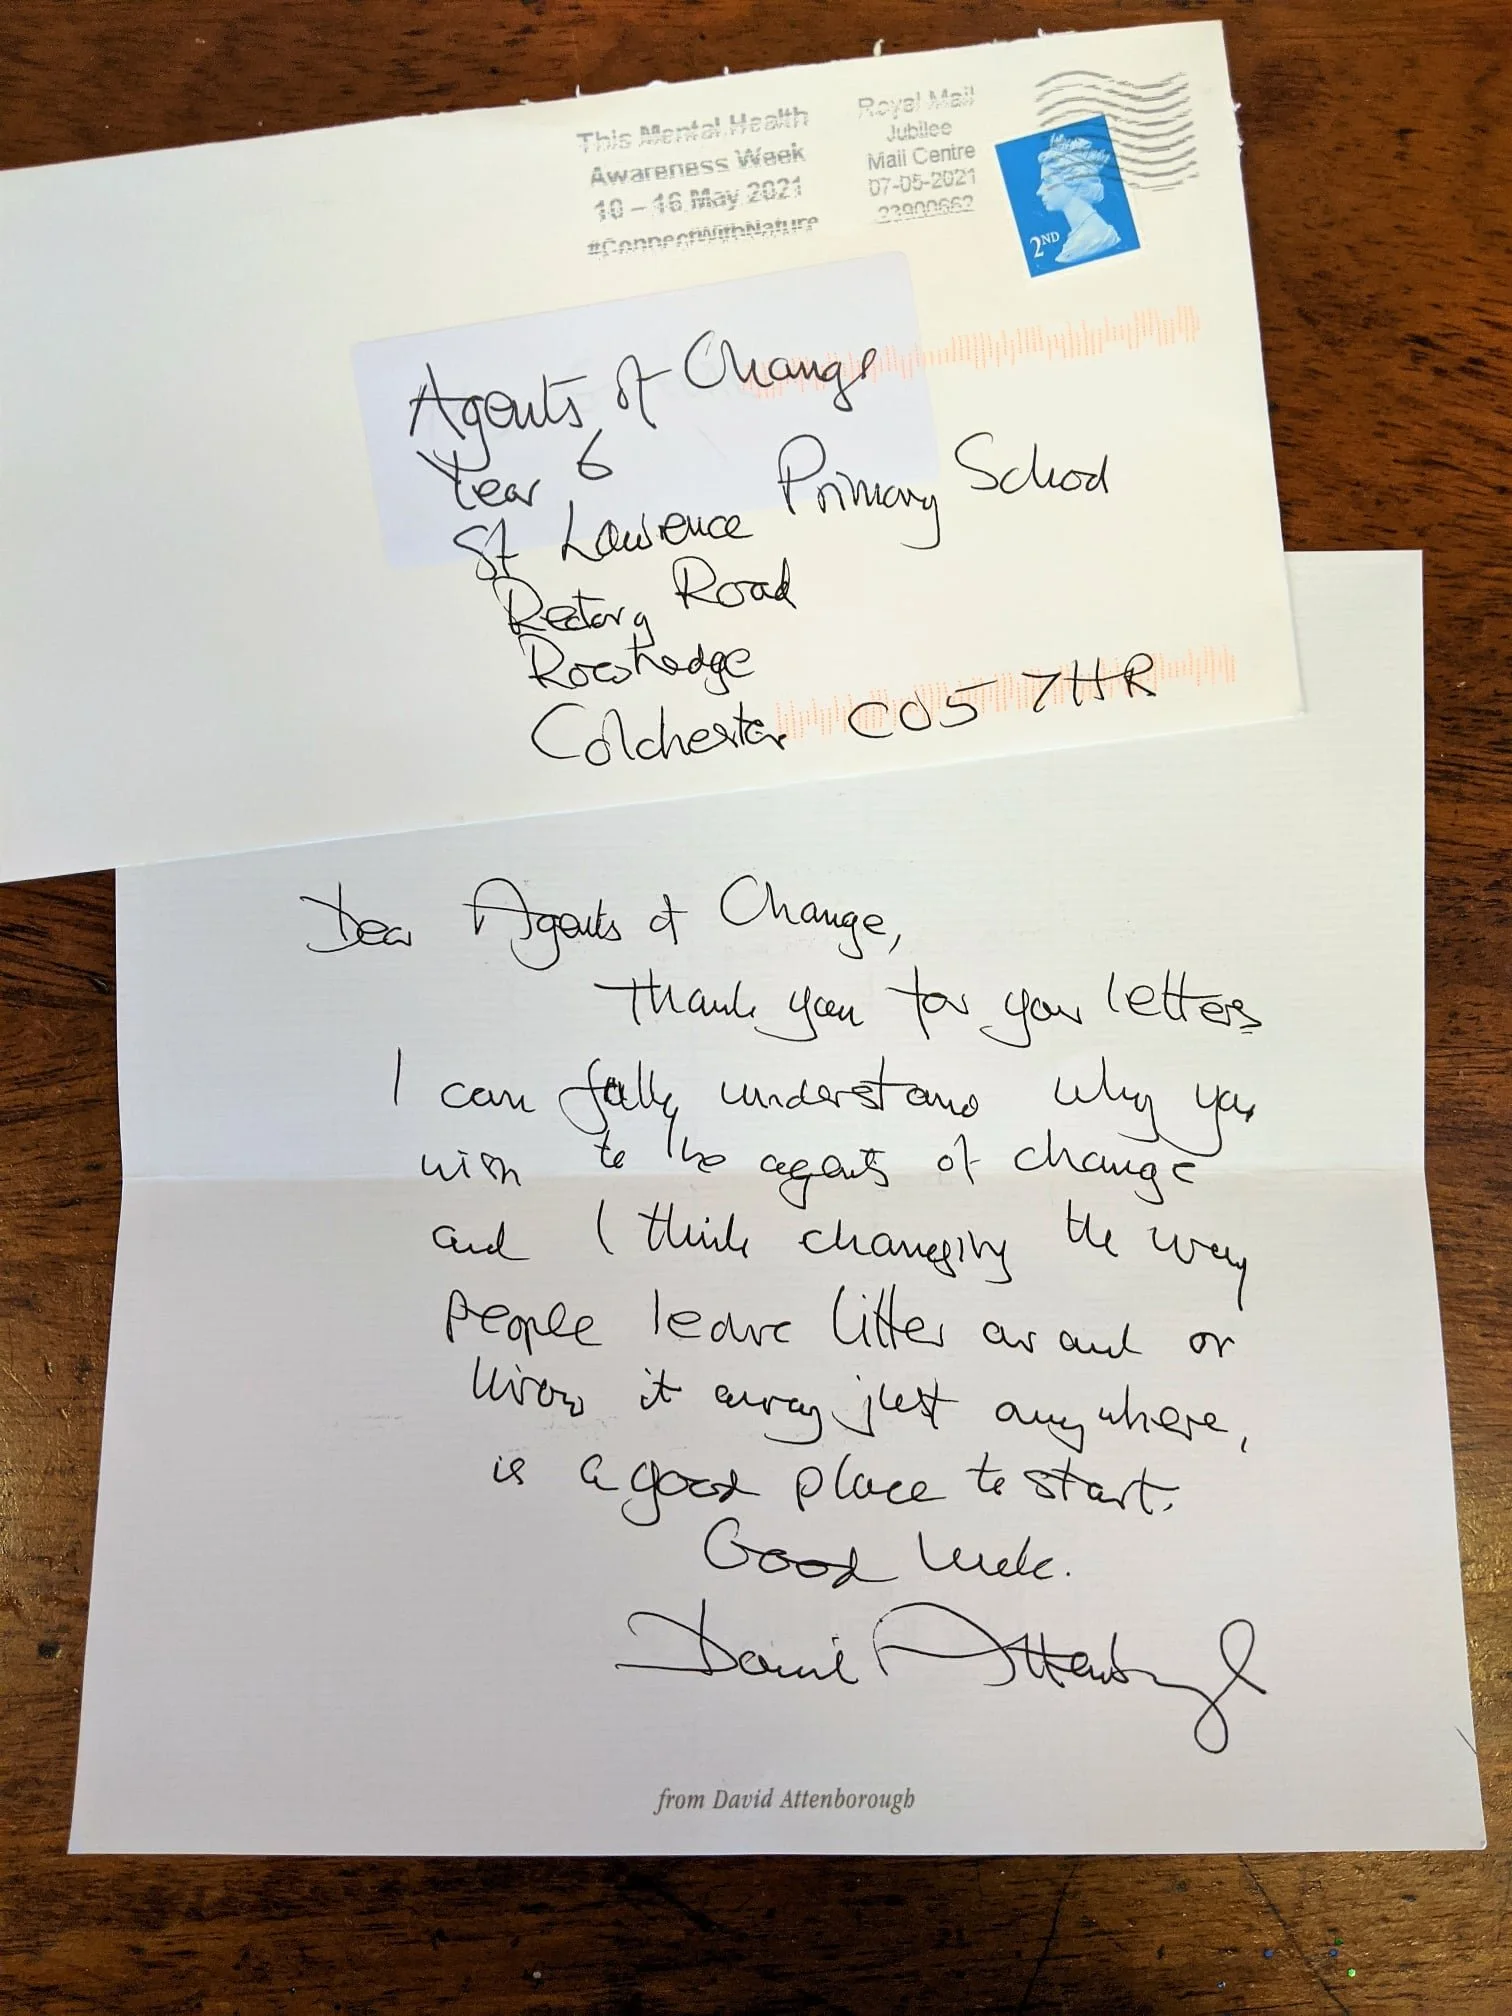 This Mental Health
Awareness Week
10 – 16 May 2021
#ConnectWithNature
Royal Mail
Jubilee
Mail Centre
07-05-2021
23900662
2ND
Agents of Change
Year 6
St Lawrence Primary School
Rectory Road
Rowhedge
Colchester CO5 7HR
Dear Agents of Change,
Thank you for your letters
I can fully understand why you
wish to be agents of change
and I think changing the way
people leave litter around or
throw it away just anywhere,
is a good place to start.
Good luck.
David Attenborough
from David Attenborough